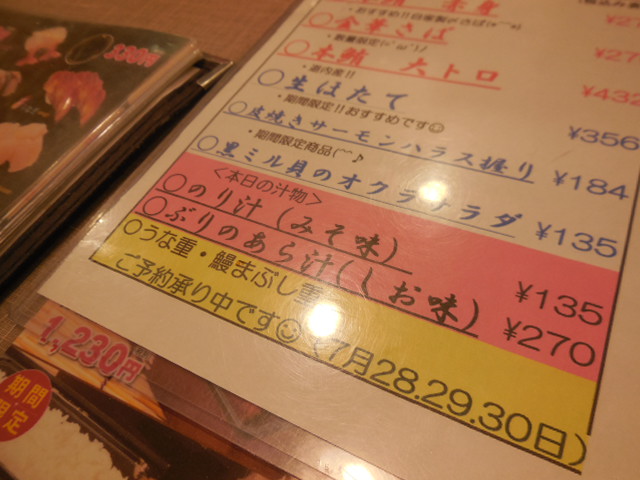 おすすめ!!自家製〆さば(*^^*)
○金華さば
・数量限定(*'ω'*)ノ
○本鮪 大トロ
・道内産!!
○生ほたて
¥356
・期間限定!!おすすめです☺
○皮焼きサーモンハラス握り
¥184
・期間限定商品(^^♪
○黒ミル貝のオクラサラダ
¥135
<本日の汁物>
○のり汁(みそ味)
¥135
○ぶりのあら汁(しお味)
¥270
○うな重・鰻まぶし重
ご予約承り中です☺<7月28.29.30日)
1,230円
期間
限定